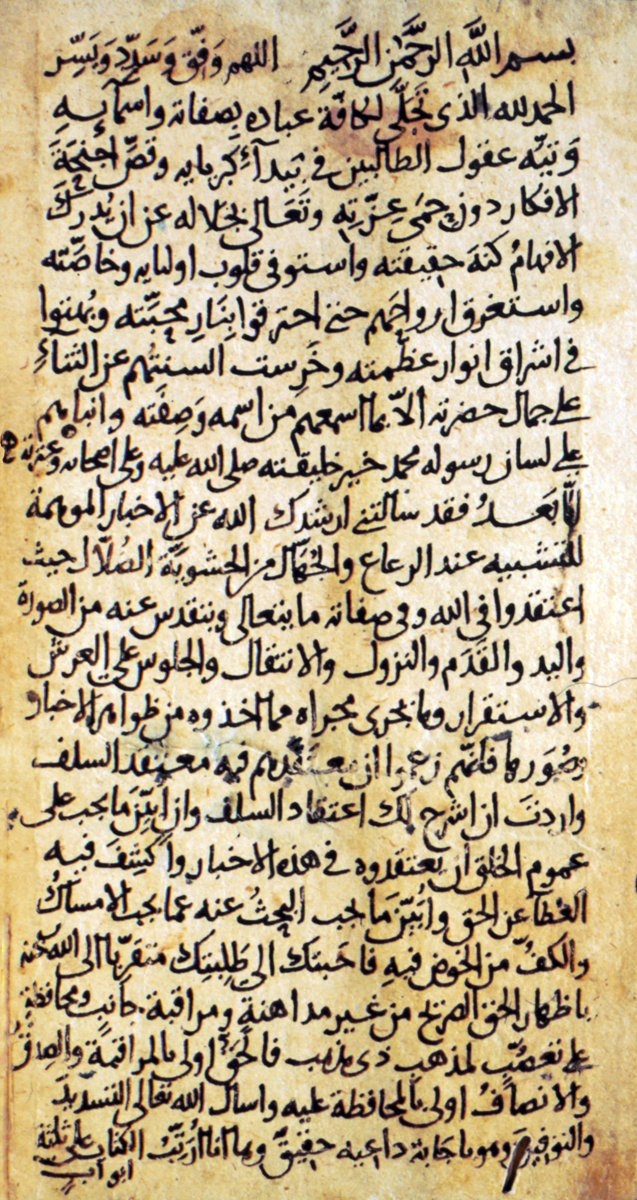 بسم اللَّه الرَّحمٰن الرَّحيم اللهم وَفّق وَسَدِّد وَيَسِّر
الحمد لله الذى تجَلَّى لكافّة عباده بِصفاته واسمآيِهِ
وَتيَّه عقول الطالبين في بَيدآءِ كبريايه وقصَّ اجنِحَةَ
الافكار دون حِمَى عِزّتِه وتَعَالى بجلاله عن ان يُدرك
الافهامُ كنهَ حقيقته واستوفى قلوب اوليايه وخاصَّته
واستغرق ارواحَهم حتى احترقوا بِنَارِ محبَّته وبُهتوا
في اشراق انوار عظمته وخَرِست السنتُهم عن الثناءِ
على جمال حضرته الّا بما اسمعهم من اسمه وَصِفَته وانباهم
على لسان رسوله محمد خير خليقته صلى الله عليه وعلى اصحابه وعترته
امّا بَعدُ فقد سالتنى ارشدك الله عن الاخبار الموهمة
للتشبيه عند الرعاع والجُهّال من الحشويَّة الضُلّال حيث
اعتقدوا في الله وفي صفاته ما يتعالى ويتقدس عنه من الصورة
واليد والقَدَم والنزول والانتقال والجلوس على العرش
والاستقرار وما يجرى مجراه مما اخذوه من ظواهر الاخبار
وصُوَرها فانّهم زعموا ان معتقدهم فيه معتقد السلف
واردتَ ان اشرح لك اعتقاد السلف وان اُبيِّنَ ما يجب على
عموم الخلق ان يعتقدوه في هذه الاخبار واكشِفَ فيه
الغطآ عن الحق واُبيّنَ ما يجب البحثُ عنه عما يجب الامساك
والكفُّ من الخوض فيه فاجَبتك الى طَلِبتِك متقربّا الى الله سبحنه
باظهار الحق الصريح من غير مداهنة ومراقبة جانب ومحافظة
على تعصُّب لمذهب ذى مذهب فالحق اولى بالمراقبة والصدق
والانصافُ اولى بالمحافظة عليه واسال الله تعالى التسديد
والتوفيق وهو باجابة داعيه حقيقٌ وها انا اُرَتِّبُ الكتاب على ثلثة
ابواب